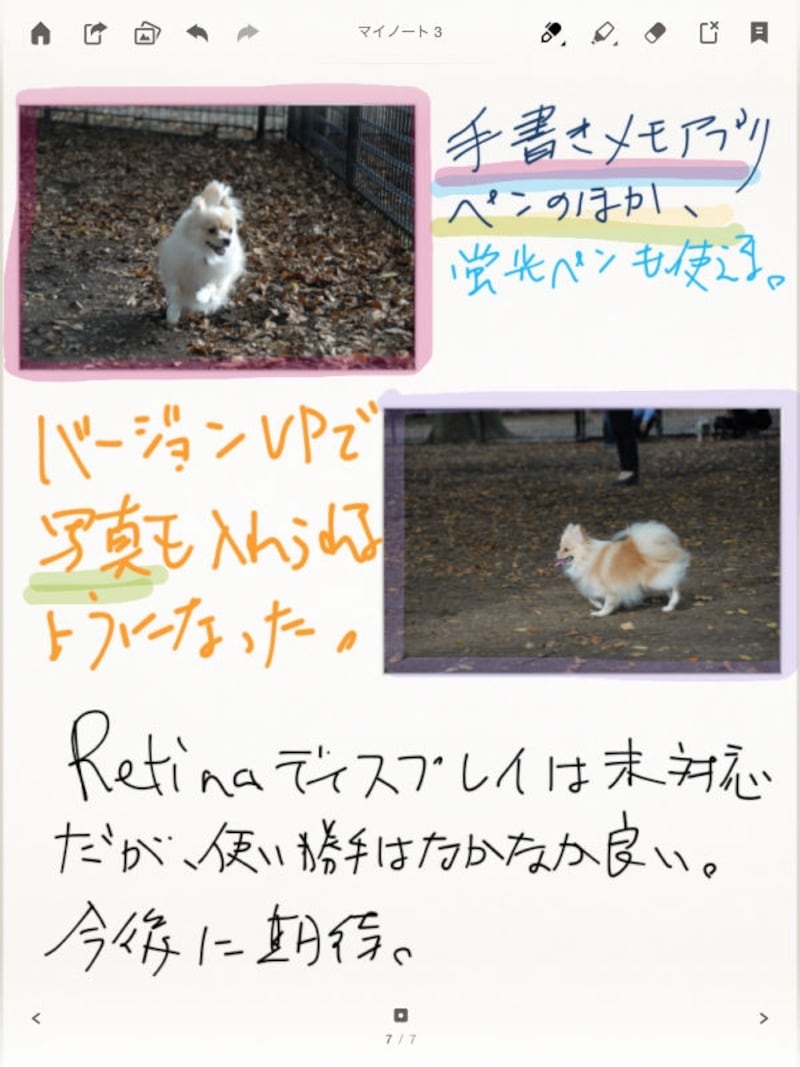 マイノート 3
手書きメモアプリ
ペンのほか、
蛍光ペンも使える。
バージョンUPで
写真も入れられる
ようになった。
Retinaディスプレイは未対応
だが、使い勝手はなかなか良い。
今後に期待。
7 / 7